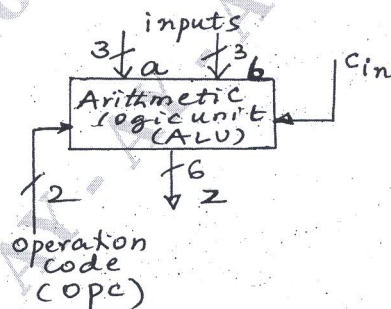 inputs
3
3
a
b
Cin
Arithmetic
logic unit
(ALU)
6
2
Z
operation
code
(OPC)